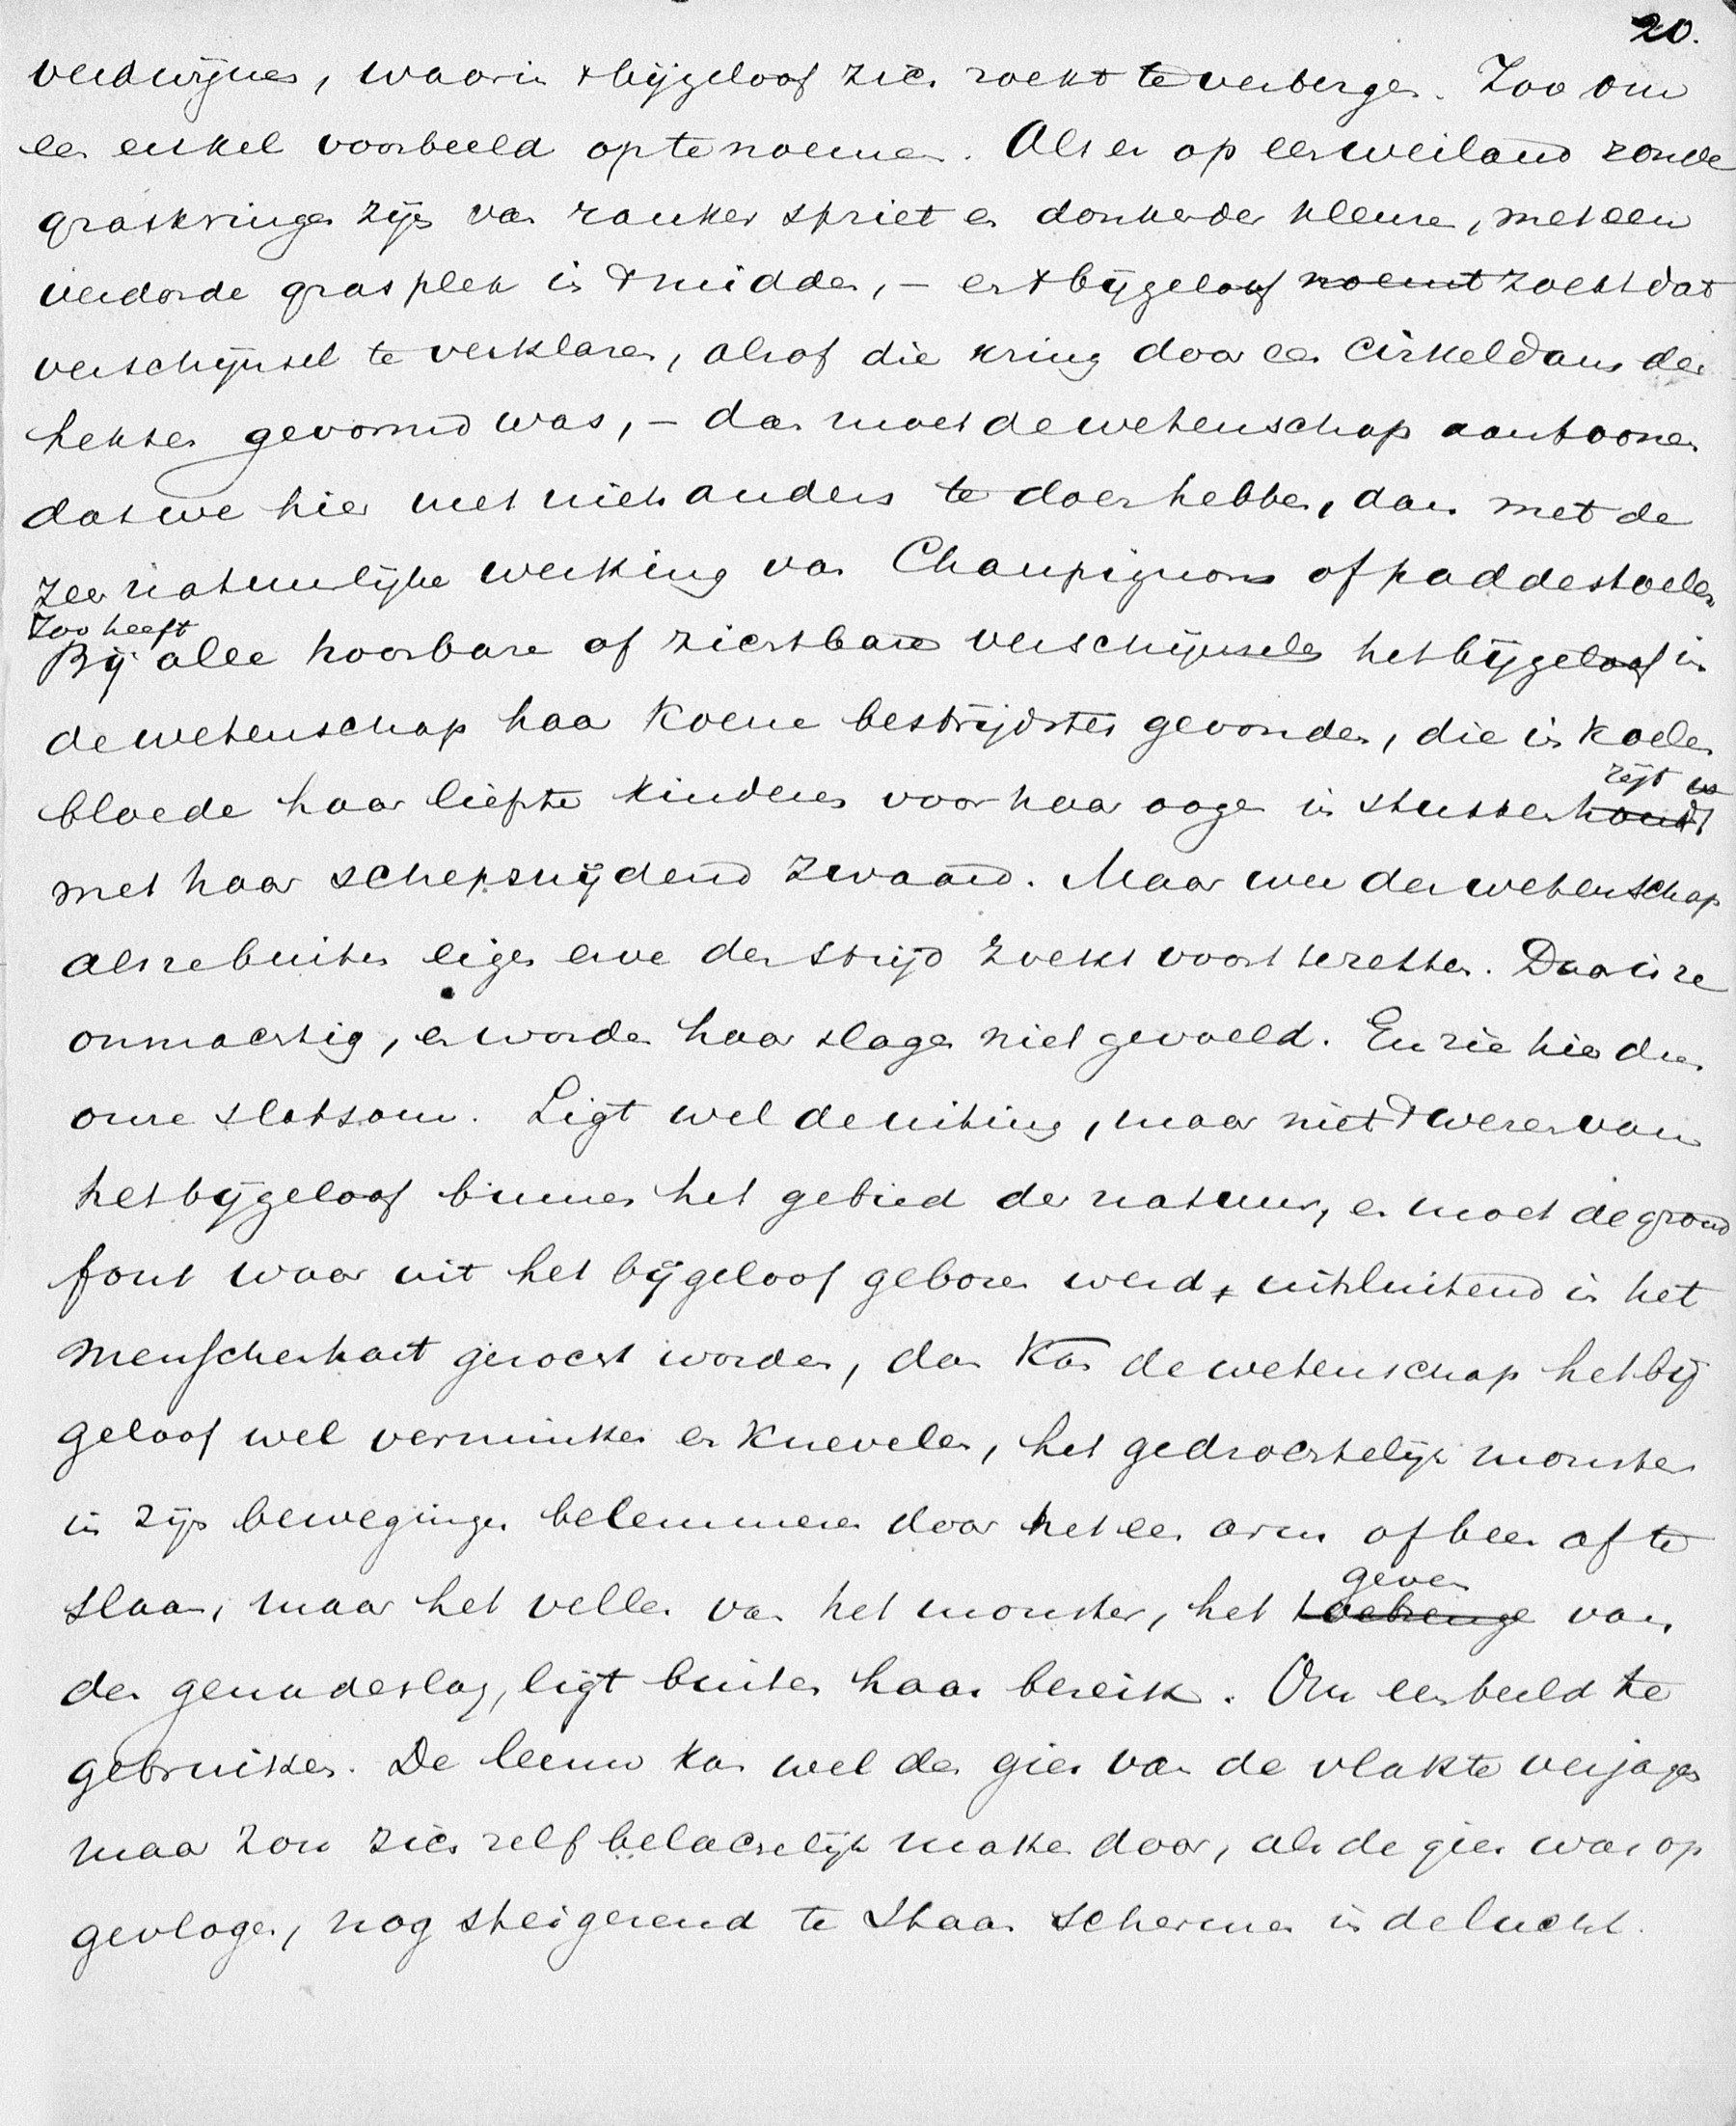 20.
verdwijnen, waarin 't bijgeloof zich zoekt te verbergen. Zoo om
een enkel voorbeeld op te noemen. Als er op een weiland ronde
graskringen zijn van ranker spriet en donkerder kleure, met een
verdorde grasplek in 't midden, – en 't bijgeloof noemt zoekt dat
verschijnsel te verklaren, alsof die kring door een cirkeldans der
heksen gevormd was, – dan moet de wetenschap aantoonen
dat we hier met niets anders te doen hebben, dan met de
zeer natuurlijke werking van Champignons of paddestoelen
Zoo heeft
Bij alle hoorbare of zichtbare verschijnselen het bijgeloof in
de wetenschap haar koene bestrijdster gevonden, die in koelen
zijt us
bloede haar liefste kinderen voor haar oogen in stukken houdt
met haar scherpsnijdend zwaard. Maar wee der wetenschap
als ze buiten eigen erve den strijd zoekt voort te zetten. Daar is ze
onmachtig, en worden haar slagen niet gevoeld. En zie hier dan
onze slotsom. Ligt wel de uiting, maar niet 't wezen van
het bijgeloof binnen het gebied der natuur, en moet de grond
fout waar uit het bijgeloof geboren werd, uitsluitend in het
menschenhart gezocht worden, dan kan de wetenschap het bij
geloof wel verminken en knevelen, het gedrochtelijk monster
in zijn bewegingen belemmeren door het een arm of been af te
geven
slaan, maar het vellen van het monster, het toebrenge van
den genadeslag, ligt buiten haar bereik. Om een beeld te
gebruiken. De leeuw kan wel den gier van de vlakte verjagen
maar zou zich zelf belachelijk maken door, als de gier was op
gevlogen, nog steigerend te staan schermen in de lucht.